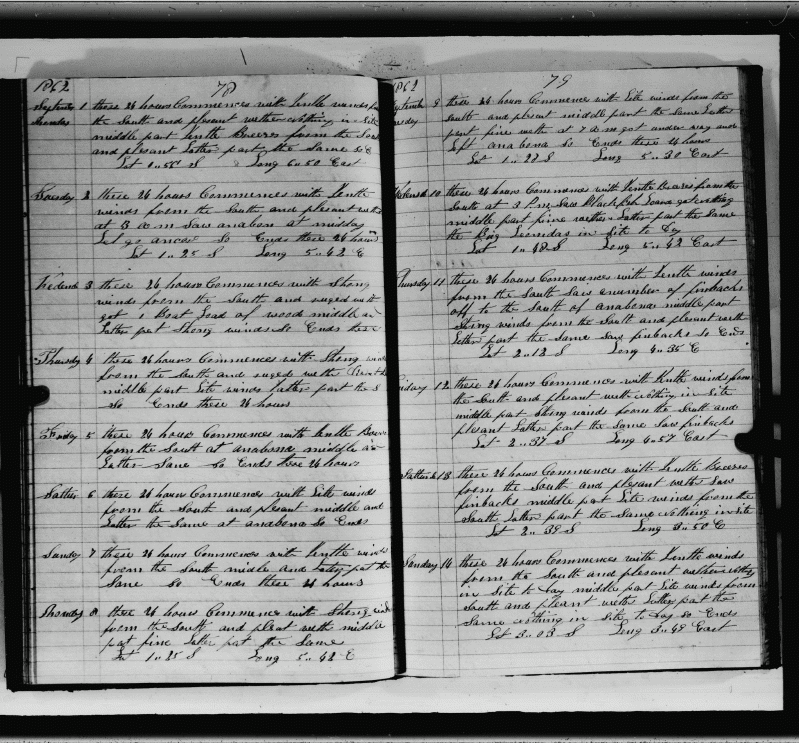 1862
78
1 these 24 hours Commences with Kentle winds from
the South and plesant wether nothing in Site
middle part kentle Breeses from the Sou
and plesant Latter part the Same So E
Lat 1..50 S Long 6..50 East
Tuesday 2 these 24 hours Commences with Kentle
winds from the South and plesant
at 3 a m Saw anabon at midday
Let go ancor So Ends these 24 hours
Lat 1..25 S Long 5..42 E
3 these 24 hours Commences with Strong
winds from the South and ruged
got 1 Boat Load of wood middle
Latter pat Strong winds So Ends these
Thursday 4 these 24 hours Commences with Strong wind
from the South and ruged
middle part Lite winds latter part the S
So Ends these 24 hours
Friday 5 these 24 hours Commences with kentle
from the South at anabona middle an
Latter Same So Ends these 24 hours
6 these 24 hours Commences with Lite winds
from the South and plesant middle and
Latter the Same at anabona So Ends
Sunday 7 these 24 hours Commences with Kentle winds
from the South midle and Latter pat the
Same So Ends these 24 hours
8 these 24 hours Commences with Strong wind
from the South and middle
pat fine Latter pat the Same
Lat 1..25 S Long 5..42 E
1862
79
9 these 24 hours Commences with Lite winds from the
South and plesant middle part the Same Latter
part fine at 7 a m got under way and
Left anabona So Ends these 24 hours
Lat 1..27 S Long 5..30 East
10 these 24 hours Commences with Kentle from the
South at 3 P m Saw Blackfish Lowerd got nothing
middle part fine wether Latter part the Same
the Brig Leonidas in Site to day
Lat 1..48 S Long 5..42 East
Thursday 11 these 24 hours Commences with Kentle winds
from the South Saw a number of finbacks
off to the South of anabona middle part
Strong winds from the South and plesant
Latter part the Same Saw finbacks So Ends
Lat 2..12 S Long 4..35 E
Friday 12 these 24 hours Commences with Kentle winds from
the South and plesant with nothing in Site
middle part Strong winds from the South and
plesant Latter part the Same Saw finbacks
Lat 2..37 S Long 4..57 East
13 these 24 hours Commences with Kentle Breeses
from the South and plesant Saw
finbacks middle part Lite winds from the
South Latter part the Same nothing in Site
Lat 2..39 S Long 3..50 E
Sunday 14 these 24 hours Commences with Kentle winds
from the South and plesant wether nothing
in Site to day middle part Lite winds from
South and plesant Latter part the
Same nothing in Site to day So Ends
Lat 3..03 S Long 3..49 East